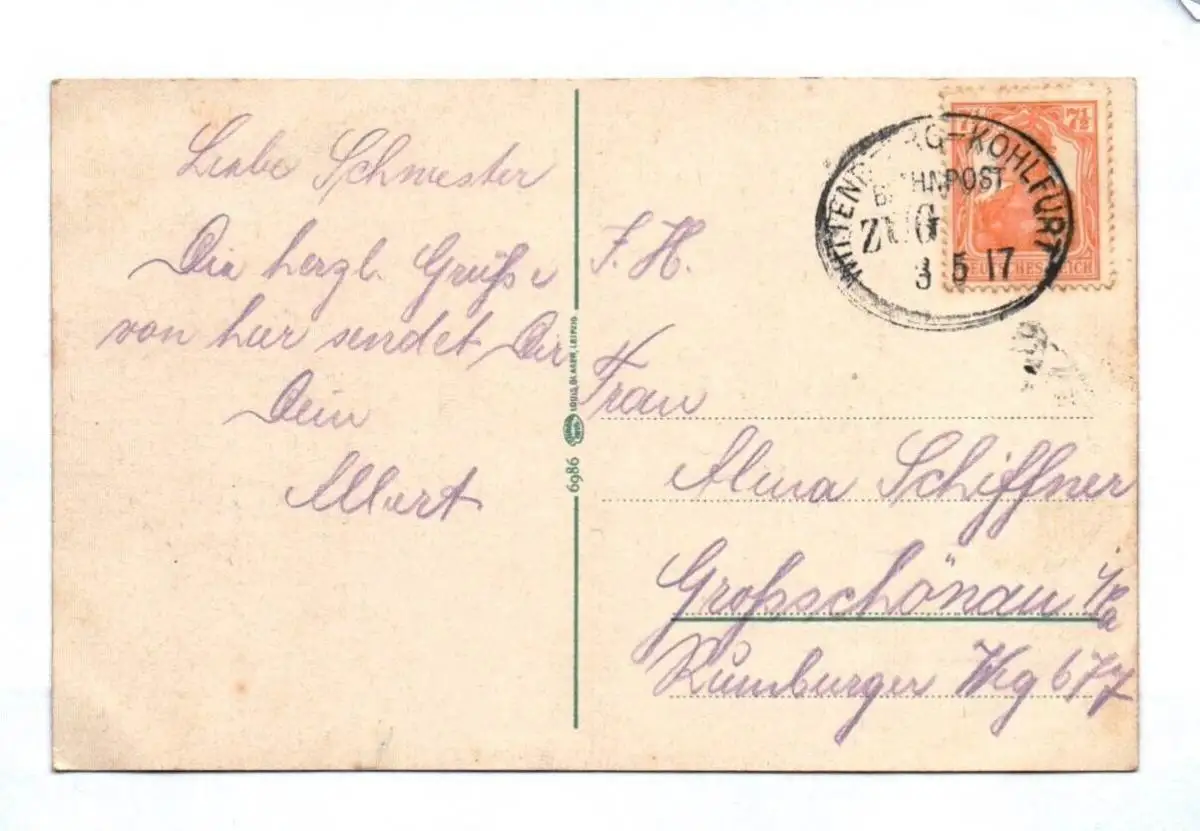 Liebe Schwester
Die herzl. Grüße
von hier sendet Dir
Dein
Albert
6986
LOUIS GLASER, LEIPZIG
7½ 7½
DEUTSCHES REICH
WITTENBERG-KOHLFURT
BAHNPOST
ZUG
3 5 17
F. H.
Frau
Alma Schiffner
Großschönau i/Sa
Rumburger Weg 677